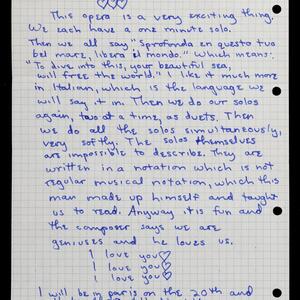 ♡♡♡
This opera is a very exciting thing.
We each have a one minute solo.
Then we all say "Sprofonda en questo tuo
bel mare, libera il mondo." Which means:
"To dive into this, your beautiful sea,
will free the world." I like it much more
in Italian, which is the language we
will say it in. Then we do our solos
again, two at a time, as duets. Then
we do all the solos simultaneously,
very softly. The solos themselves
are impossible to describe. They are
written in a notation which is not
regular musical notation, which this
man made up himself and taught
us to read. Anyway it is fun and
the composer says we are
geniuses and he loves us.
I love you ♡
I love you ♡
I love you ♡
I will be in paris on the 20th and